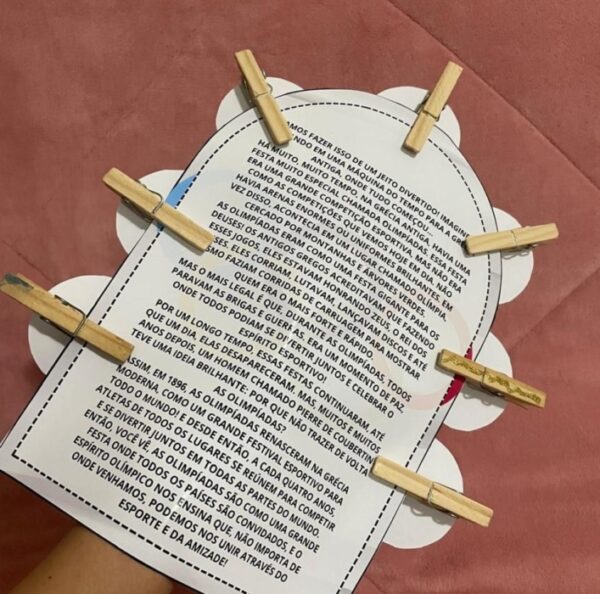 AMOS FAZER ISSO DE UM JEITO DIVERTIDO! IMAGINE
ENDO EM UMA MÁQUINA DO TEMPO PARA A GRÉ
ANTIGA, ONDE TUDO COMEÇOU...
HÁ MUITO, MUITO TEMPO, NA GRÉCIA ANTIGA, HAVIA UMA
FESTA MUITO ESPECIAL CHAMADA OLIMPÍADAS. ESSA FESTA
ERA UMA GRANDE COMPETIÇÃO ESPORTIVA, MAS NÃO ERA
COMO AS COMPETIÇÕES QUE VEMOS HOJE EM DIA. NÃO
HAVIA ARENAS ENORMES OU UNIFORMES BRILHANTES. EM
VEZ DISSO, ACONTECIA EM UM LUGAR CHAMADO OLÍMPIA,
CERCADO POR MONTANHAS E ÁRVORES VERDES.
AS OLIMPÍADAS ERAM COMO UMA FESTA GIGANTE PARA OS
DEUSES! OS ANTIGOS GREGOS ACREDITAVAM QUE, FAZENDO
ESSES JOGOS, ELES ESTAVAM HONRANDO ZEUS, O REI DOS
SES. ELES CORRIAM, LUTAVAM, LANÇAVAM DISCOS E ATÉ
SMO FAZIAM CORRIDAS DE CARRUAGEM PARA MOSTRAR
QUEM ERA O MAIS FORTE E RÁPIDO!
MAS O MAIS LEGAL É QUE, DURANTE AS OLIMPÍADAS, TODOS
PARAVAM AS BRIGAS E GUERRAS. ERA UM MOMENTO DE PAZ,
ONDE TODOS PODIAM SE DIVERTIR JUNTOS E CELEBRAR O
ESPÍRITO ESPORTIVO!
POR UM LONGO TEMPO, ESSAS FESTAS CONTINUARAM, ATÉ
QUE UM DIA, ELAS DESAPARECERAM. MAS, MUITOS E MUITOS
ANOS DEPOIS, UM HOMEM CHAMADO PIERRE DE COUBERTIN
TEVE UMA IDEIA BRILHANTE: POR QUE NÃO TRAZER DE VOLTA
AS OLIMPÍADAS?
ASSIM, EM 1896, AS OLIMPÍADAS RENASCERAM NA GRÉCIA
MODERNA, COMO UM GRANDE FESTIVAL ESPORTIVO PARA
TODO O MUNDO! E DESDE ENTÃO, A CADA QUATRO ANOS,
ATLETAS DE TODOS OS LUGARES SE REÚNEM PARA COMPETIR
E SE DIVERTIR JUNTOS EM TODAS AS PARTES DO MUNDO.
ENTÃO, VOCÊ VÊ, AS OLIMPÍADAS SÃO COMO UMA GRANDE
FESTA ONDE TODOS OS PAÍSES SÃO CONVIDADOS, E O
ESPÍRITO OLÍMPICO NOS ENSINA QUE, NÃO IMPORTA DE
ONDE VENHAMOS, PODEMOS NOS UNIR ATRAVÉS DO
ESPORTE E DA AMIZADE!